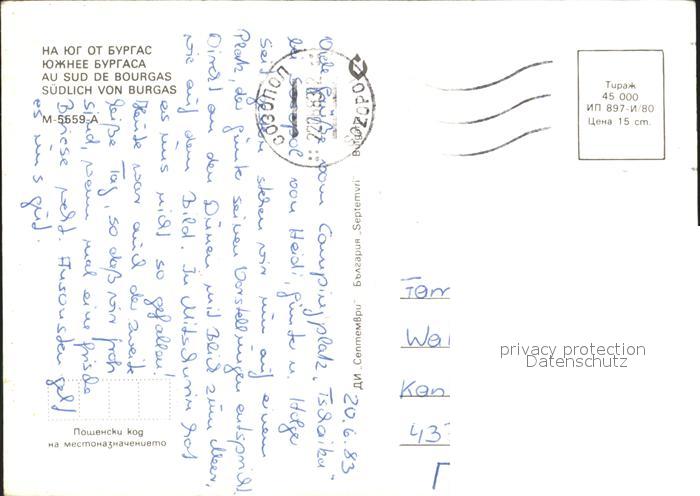 НА ЮГ ОТ БУРГАС
ЮЖНЕЕ БУРГАСА
AU SUD DE BOURGAS
SÜDLICH VON BURGAS
М-5659-А
Тираж
45 000
ИП 897-И/80
Цена 15 cm.
СОЗОПОЛ
SOZOPO
ДИ „Септември“ България „Septemvri“
20.6.83
Viele Grüße vom Campingplatz „Tschaika“
bei Sosopol von Heidi, Günter u. Holger
Seit gestern stehen wir nun auf einem
Platz, der Günter seinen Vorstellungen entspricht.
Direkt an den Dünen mit Blick zum Meer,
wie auf dem Bild. In Mitschurin hat
es uns nicht so gefallen!
Heute war auch der zweite
heiße Tag, so daß wir froh
sind, wenn mal eine frische
Briese weht. Ansonsten geht
es uns gut.
Fam
Wal
Kar
437
Пощенски код
на местоназначението
privacy protection
Datenschutz